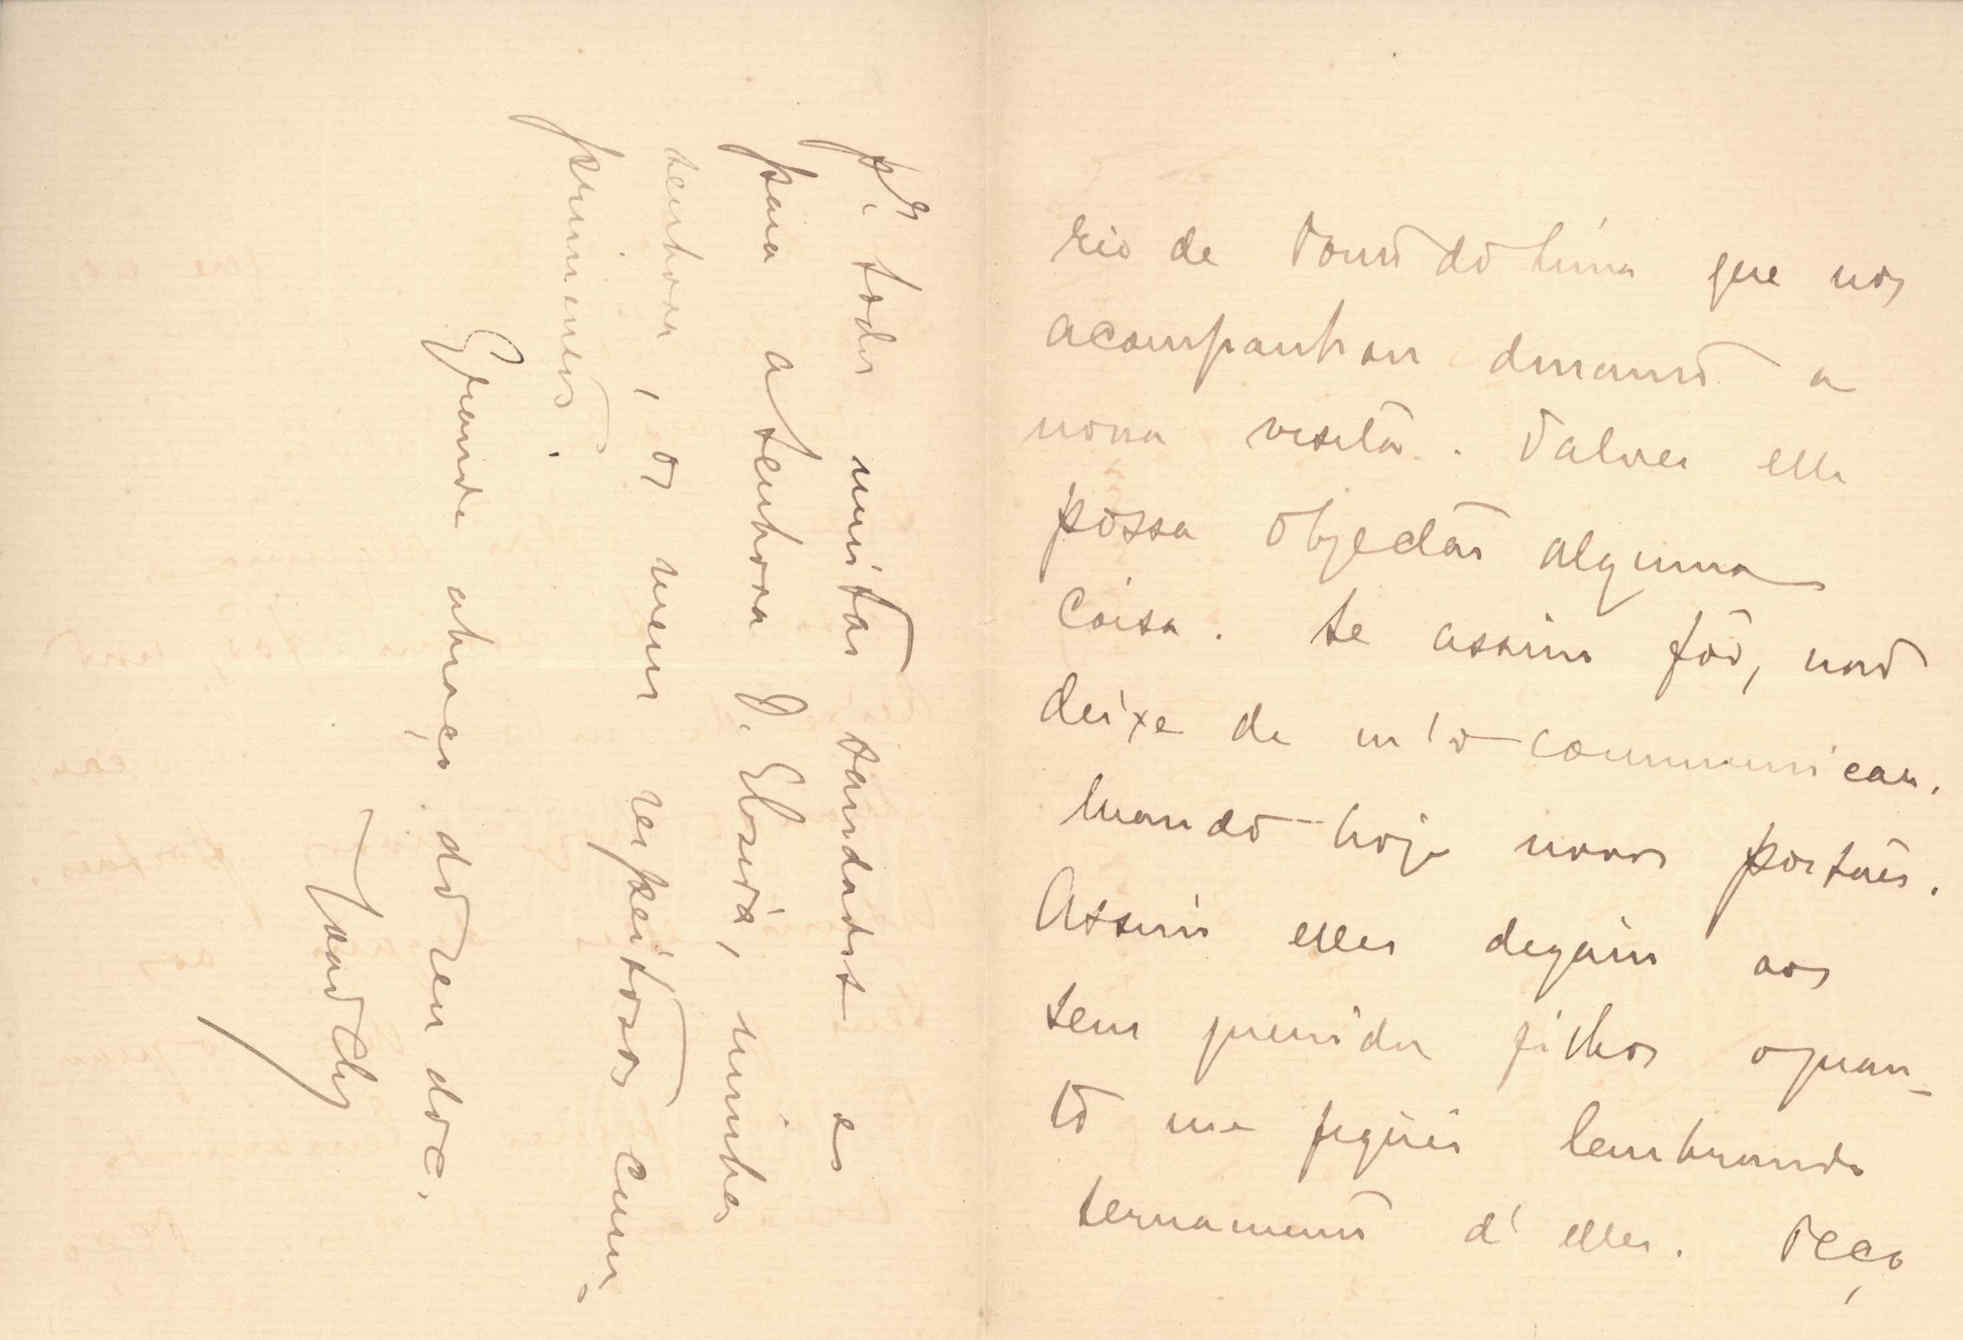 rio de Ponte do Lima que nos
acompanhou durante a
nossa visita. Talvez elle
possa objectar alguma
coisa. Se assim fôr, não
deixe de m'o communicar.
Mando hoje novos postaes.
Assim elles digam aos
seus queridos filhos o quan-
to me fiquei lembrando
ternamente d'elles. Peço
pª todos muitas saudades e
para a senhora D. Elosida, minha
senhora, os meus respeitosos cum-
primentos.
Grande abraço do seu do C.
João Ch